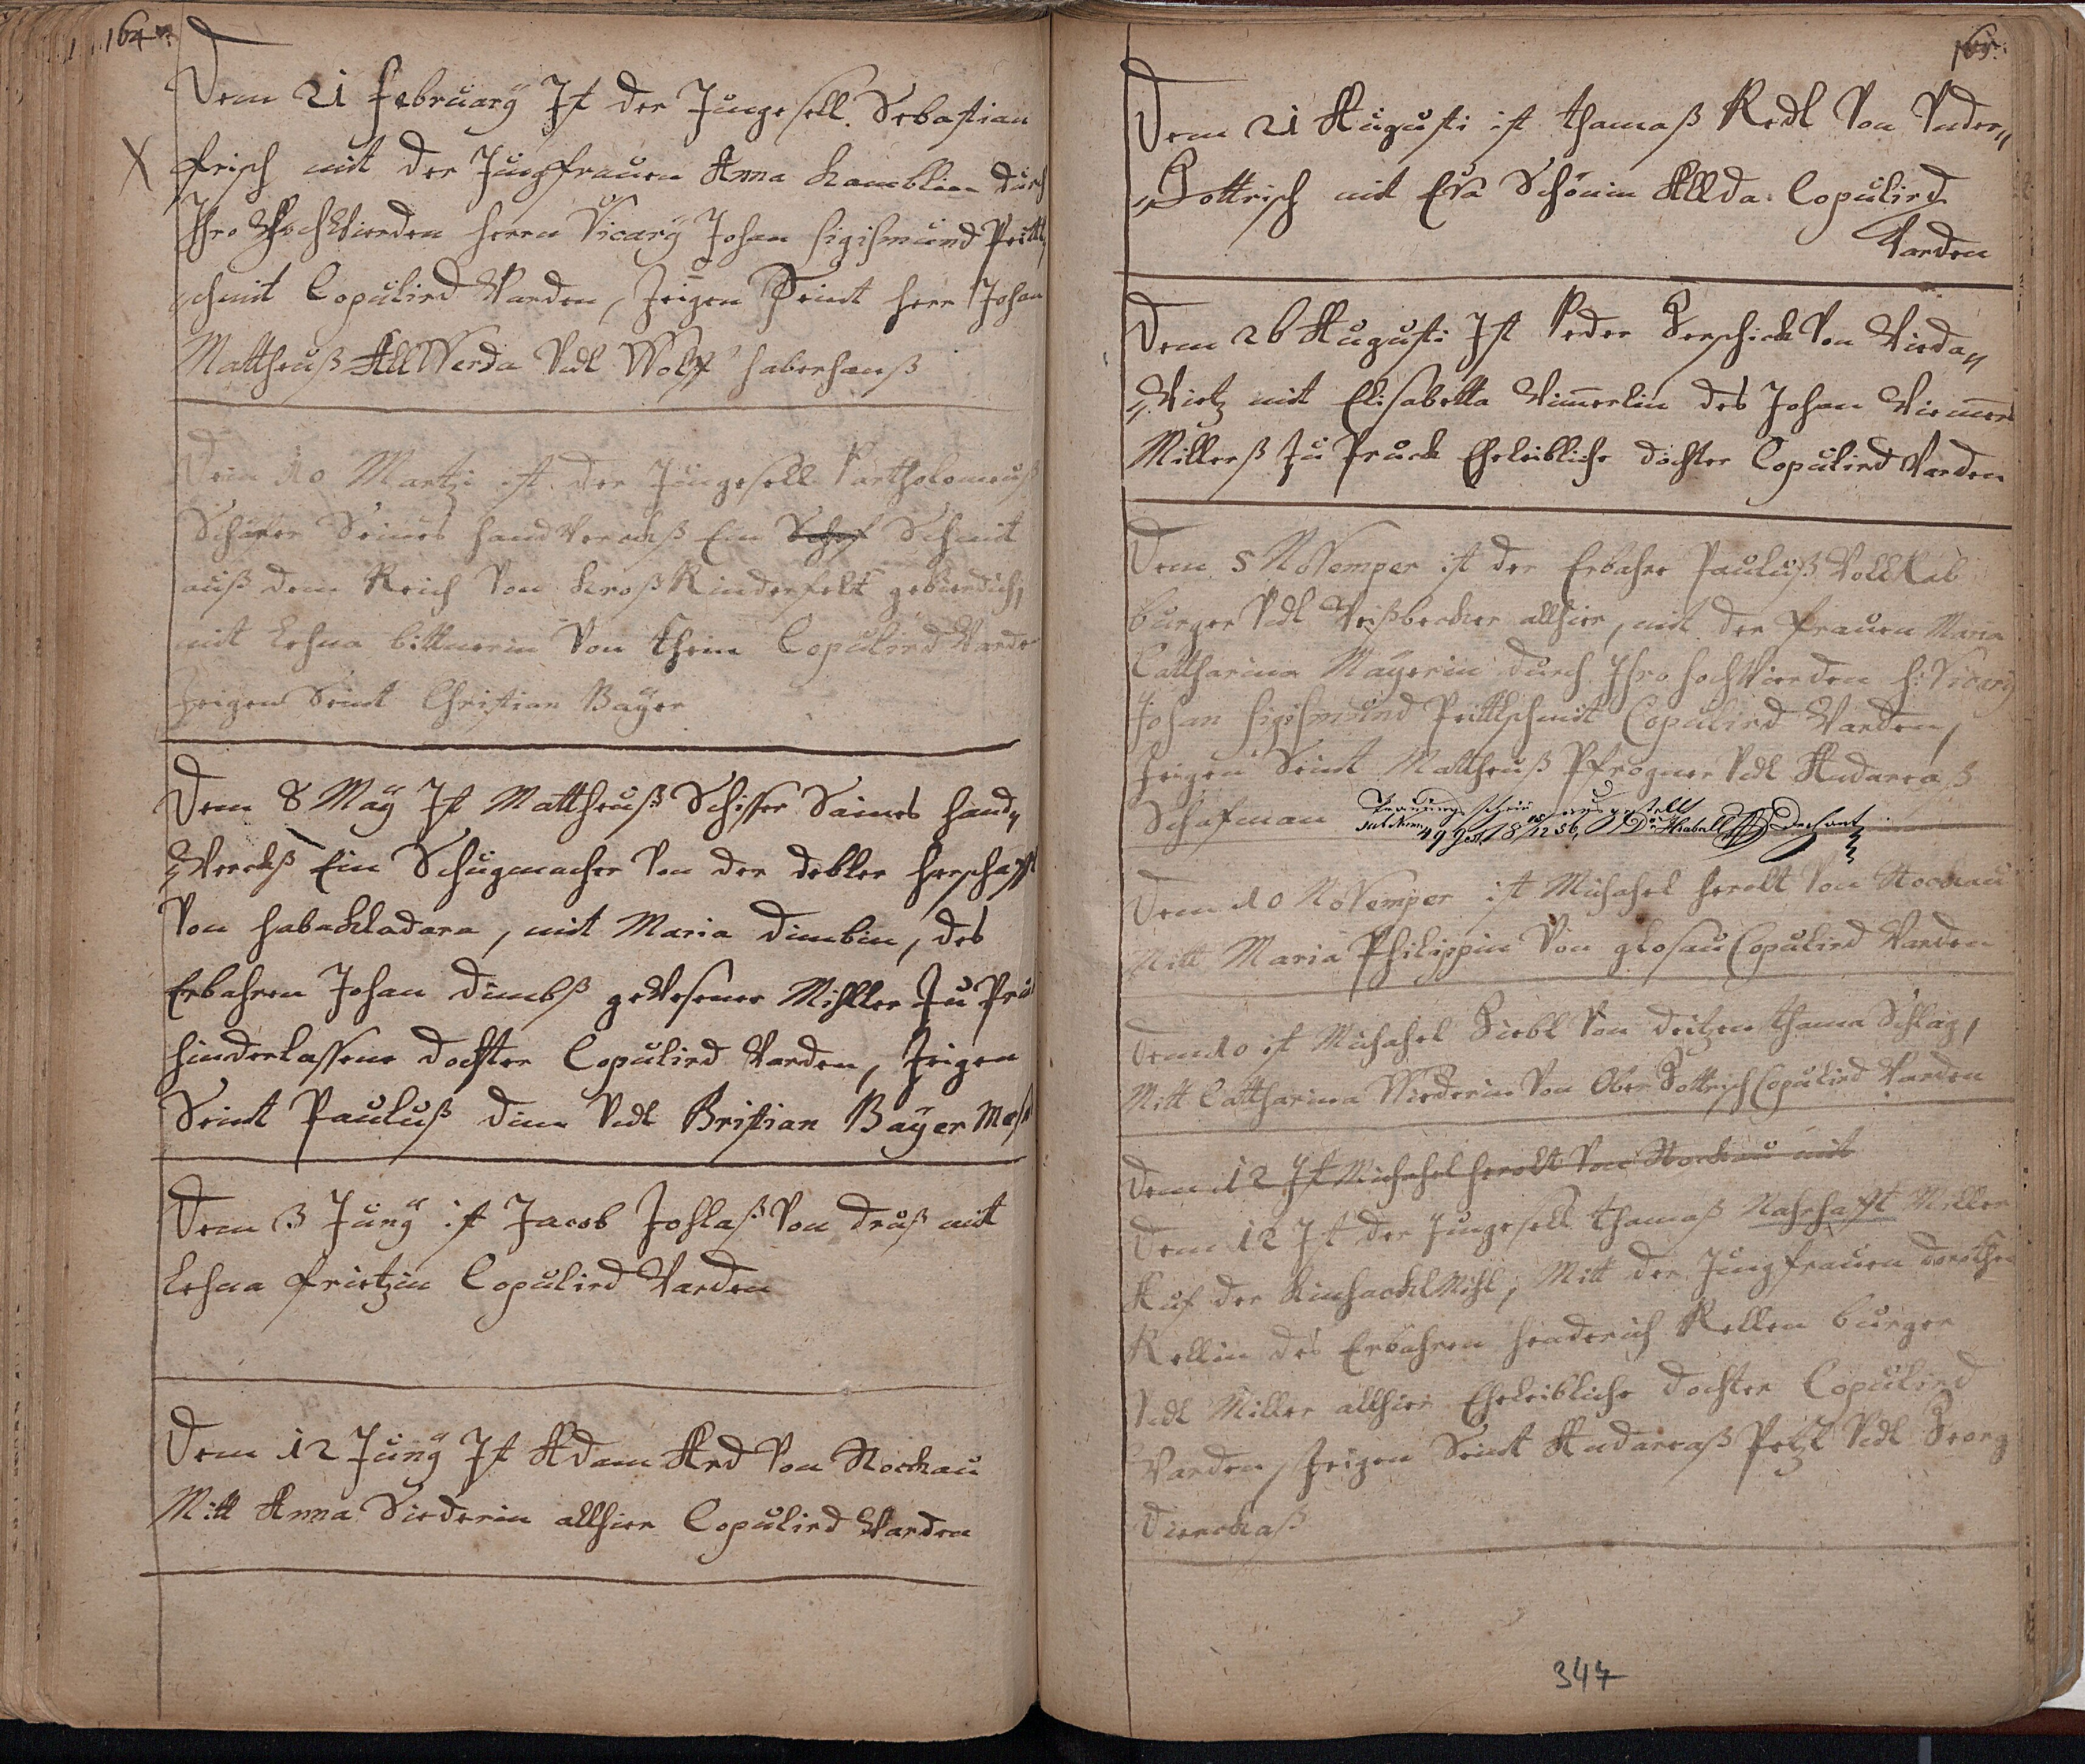 164
Dem 21 February Ist der Jungesell Sebastian
frisch mit der Jungfrauen Anna Kamblin durch
Ihro Hochwierden herrn Vicary Johan Sigismund
schmit Copulird Warden, Zeigen Seint herr Johan
Mattheuß Allwerda Vndt Wolff haberhanß
Dem 10 Martzi ist der Jungesell Bartholomeuß
Schäfer Seines handwercks Ein Schmit
auß dem Reich Von Kroß Rinderfelt gebierdich,
mit Lehna bittnerin Von Thein Copulird Warde
Zeigen Seint Christian Bayer
Dem 8 May Ist Mattheuß Schisser Seines hand,,
,,wercks Ein Schugmacher Von der debler herschafft
Von habackladara, mit Maria dimbin, des
Erbahren Johan dimbß gewesener Miller Zu
hinderlassene dochter Copulird Warden, Zeigen
Seint Pauluß dim Vndt Bristian Bayer
Dem 3 Juny ist Jacob Johlaß Von druß mit
Lehna frietzin Copulird Warden
Dem 12 Juny Ist Adam Ard Von Stockau
Mitt Anna Siederin allhier Copulird Warden
165
Dem 21 Augusti ist thamaß Redl Von Vnder,,
,,Gottrisch mit Eva Schönin Allda Copulird
Warden
Dem 26 Augusti Ist Peder Gerschick Von Wieda,,
,,Wietz mit Elisabetta Wimerlin des Johan
Millerß Zu Pruck Eheleibliche dochter Copulird Warden
Dem 5 November ist der Erbahre Pauluß Vollrab
burger Vndt Weißbecker allhier, mit der frauen Maria
Cattharina Mayerin durch Ihro hochwierden h: Vicary
Johan Sigismund Prittlschmit Copulird Warden,
Zeigen Seint Mattheuß Pfrogner Vndt Andareaß
Schafman
Dem 10 November ist Michahel herolt Von Stockau
Mitt Maria Philippin Von glosau Copulird Warden
Dem 10 ist Michahel Siebl Von deitzenthama Schlag,
Mitt Cattharina Wiederin Von Ober Gottrisch Copulird Warden
Dem 12 Ist Michahel herolt Von Stockau mit
Dem 12 Ist der Jungesell thamaß Nahrhafft Miller
Auf der Mihl, Mitt der Jungfrauen
Kellin des Erbahren henderich Kellen burger
Vndt Miller allhier Eheleibliche dochter Copulird
Warden, Zeigen Seint Andareaß Petzl Vndt Georg
347